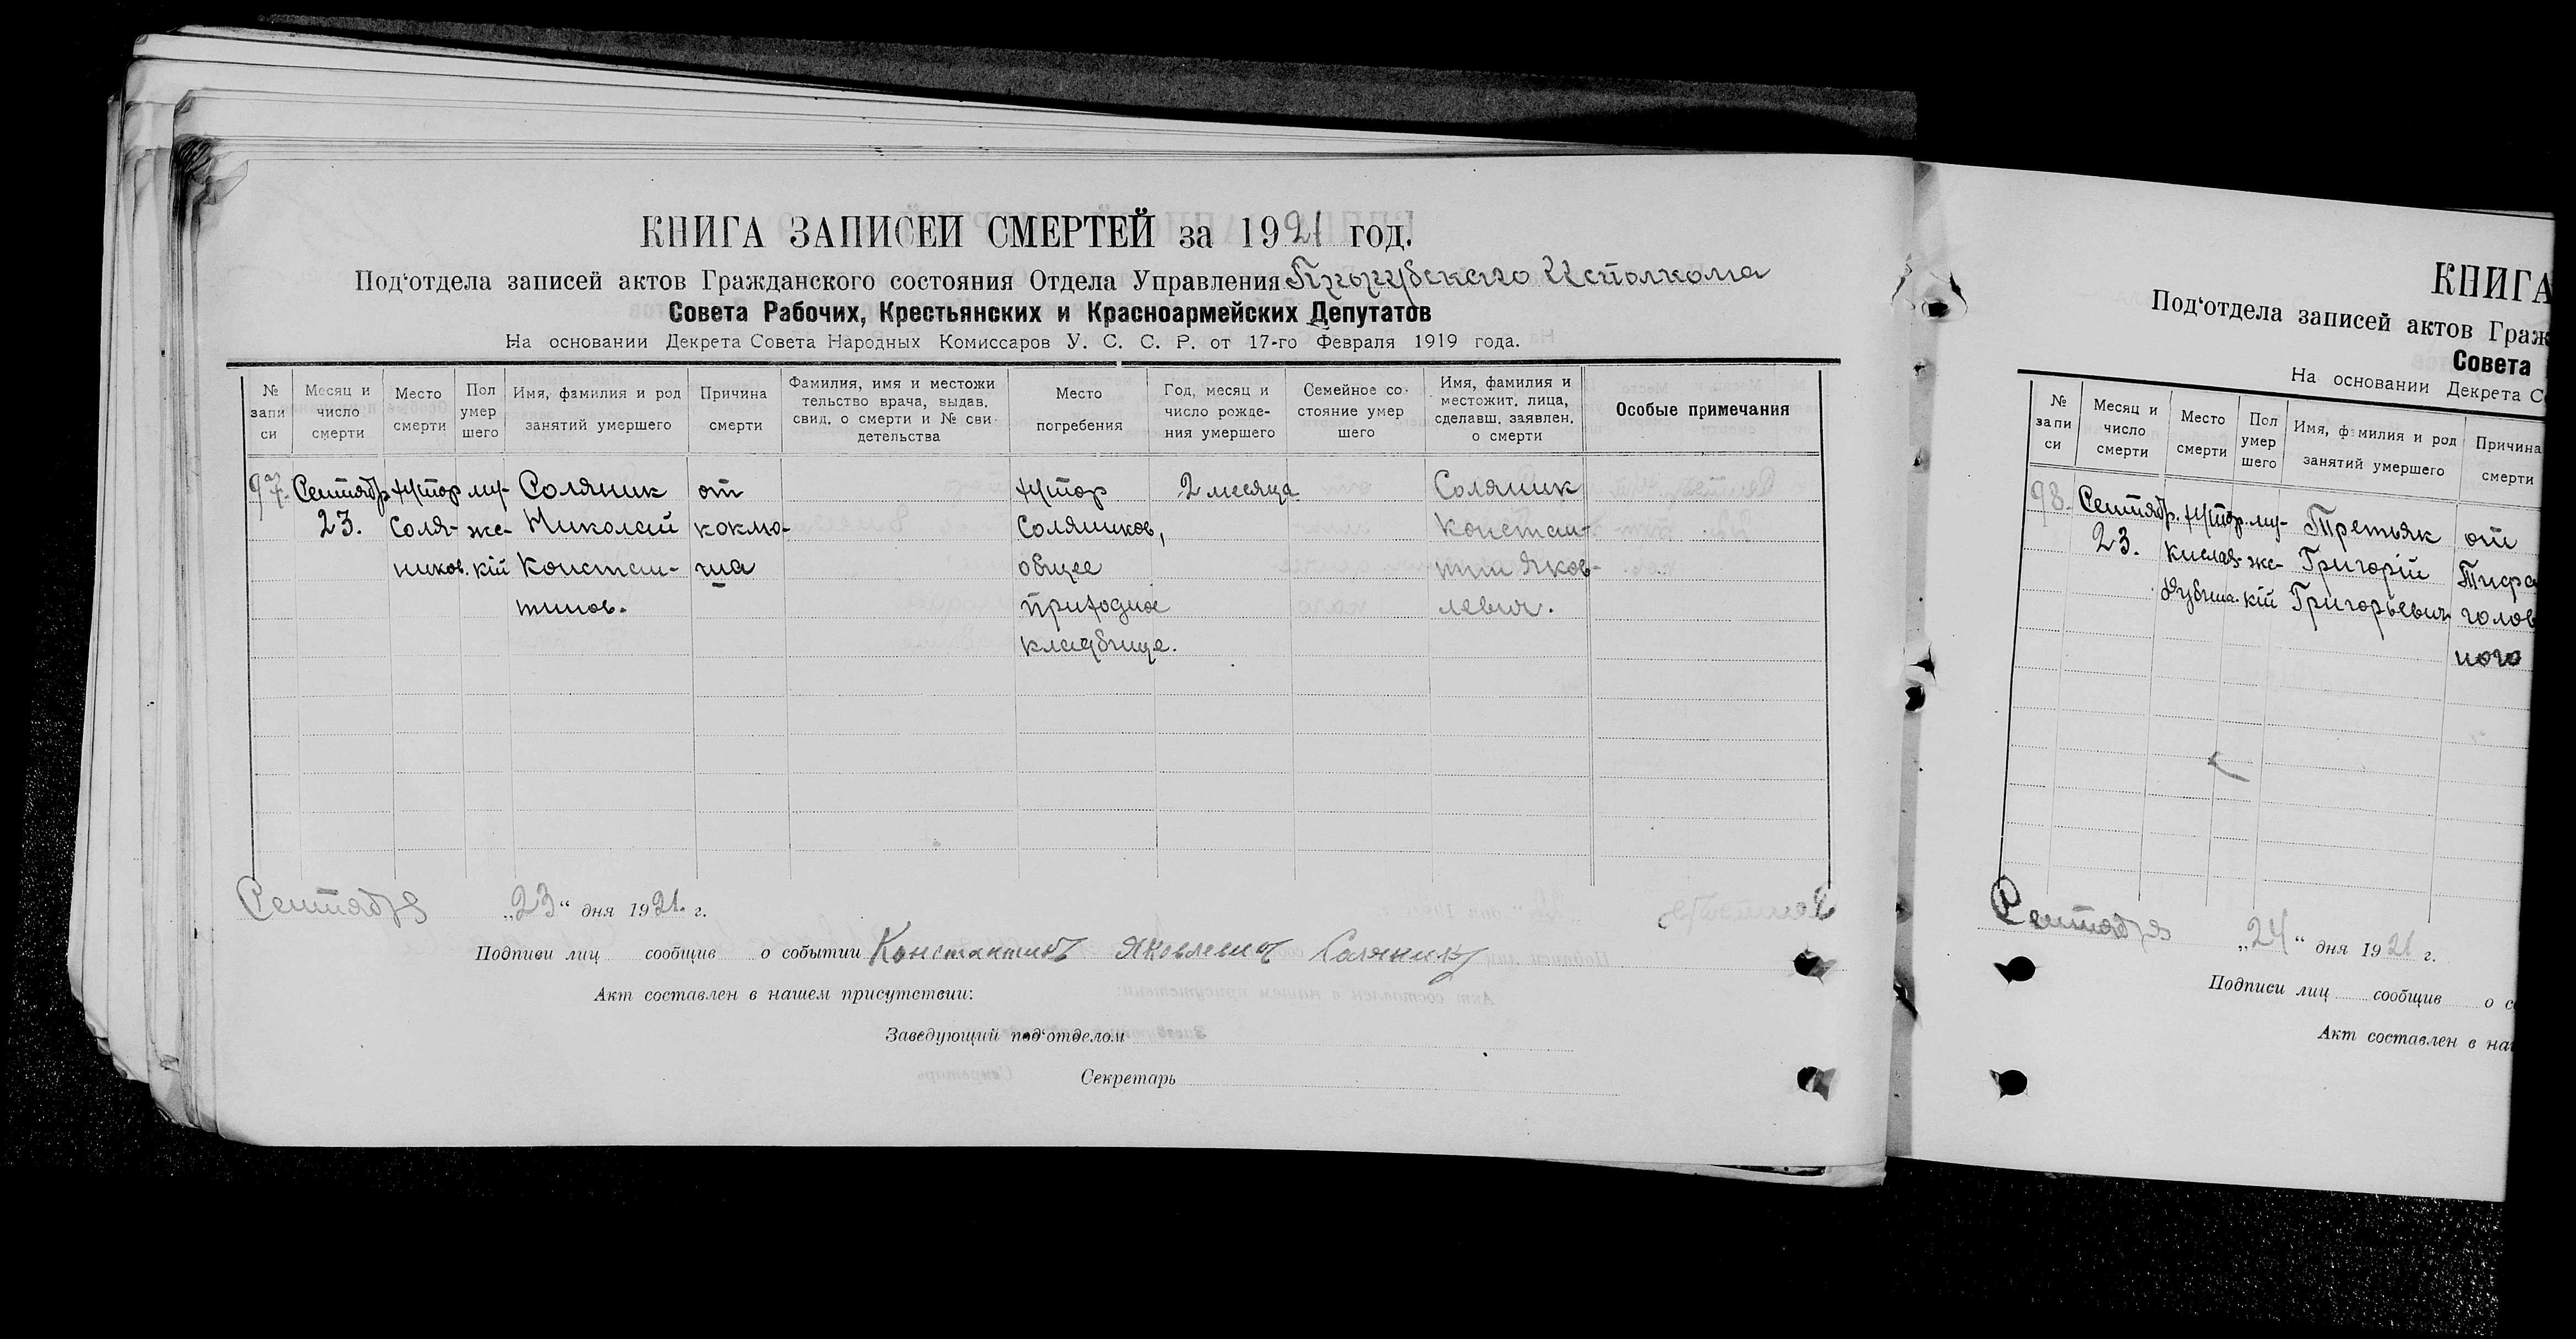 КНИГА ЗАПИСЕЙ СМЕРТЕЙ за 1921 год.
Под‘отдела записей актов Гражданского состояния Отдела Управления Исполкома
Совета Рабочих, Крестьянских и Красноармейских Депутатов
На основании Декрета Совета Народных Комиссаров У. С. С. Р. от 17-го Февраля 1919 года.
№ запи си
Месяц и число смерти
Место смерти
Пол умер шего
Имя, фамилия и род занятий умершего
Причина смерти
Фамилия, имя и местожи тельство врача, выдав. свид. о смерти и № сви- детельства
Место погребения
Год, месяц и число рожде- ния умершего
Семейное со- стояние умер шего
Имя, фамилия и местожит. лица, сделавш. заявлен. о смерти
Особые примечания
97. Сентябр. хутор му- Соляник от хутор 2 месяца Соляник
23. Соля- же- Николай коклю- Соляников, Констан-
ников. кій Констан- ша общее тин Яков-
тинов. приходное левич.
кладбище.
Сентября „23“ дня 1921. г.
Подписи лиц сообщив о событии Константинъ Яковлевич Соляникъ
Акт составлен в нашем присутствии:
Заведующий под‘отделом
Секретарь
КНИГА
Под‘отдела записей актов Граж
Совета
На основании Декрета С
№ запи си
Месяц и число смерти
Место смерти
Пол умер шего
Имя, фамилия и род занятий умершего
Причина смерти
98. Сентябр. хутор. му- Третьяк от
23. же- Григорій Тифа
кій Григорьевич голов
ного
Сентября „24“ дня 1921 г.
Подписи лиц сообщив о с
Акт составлен в на